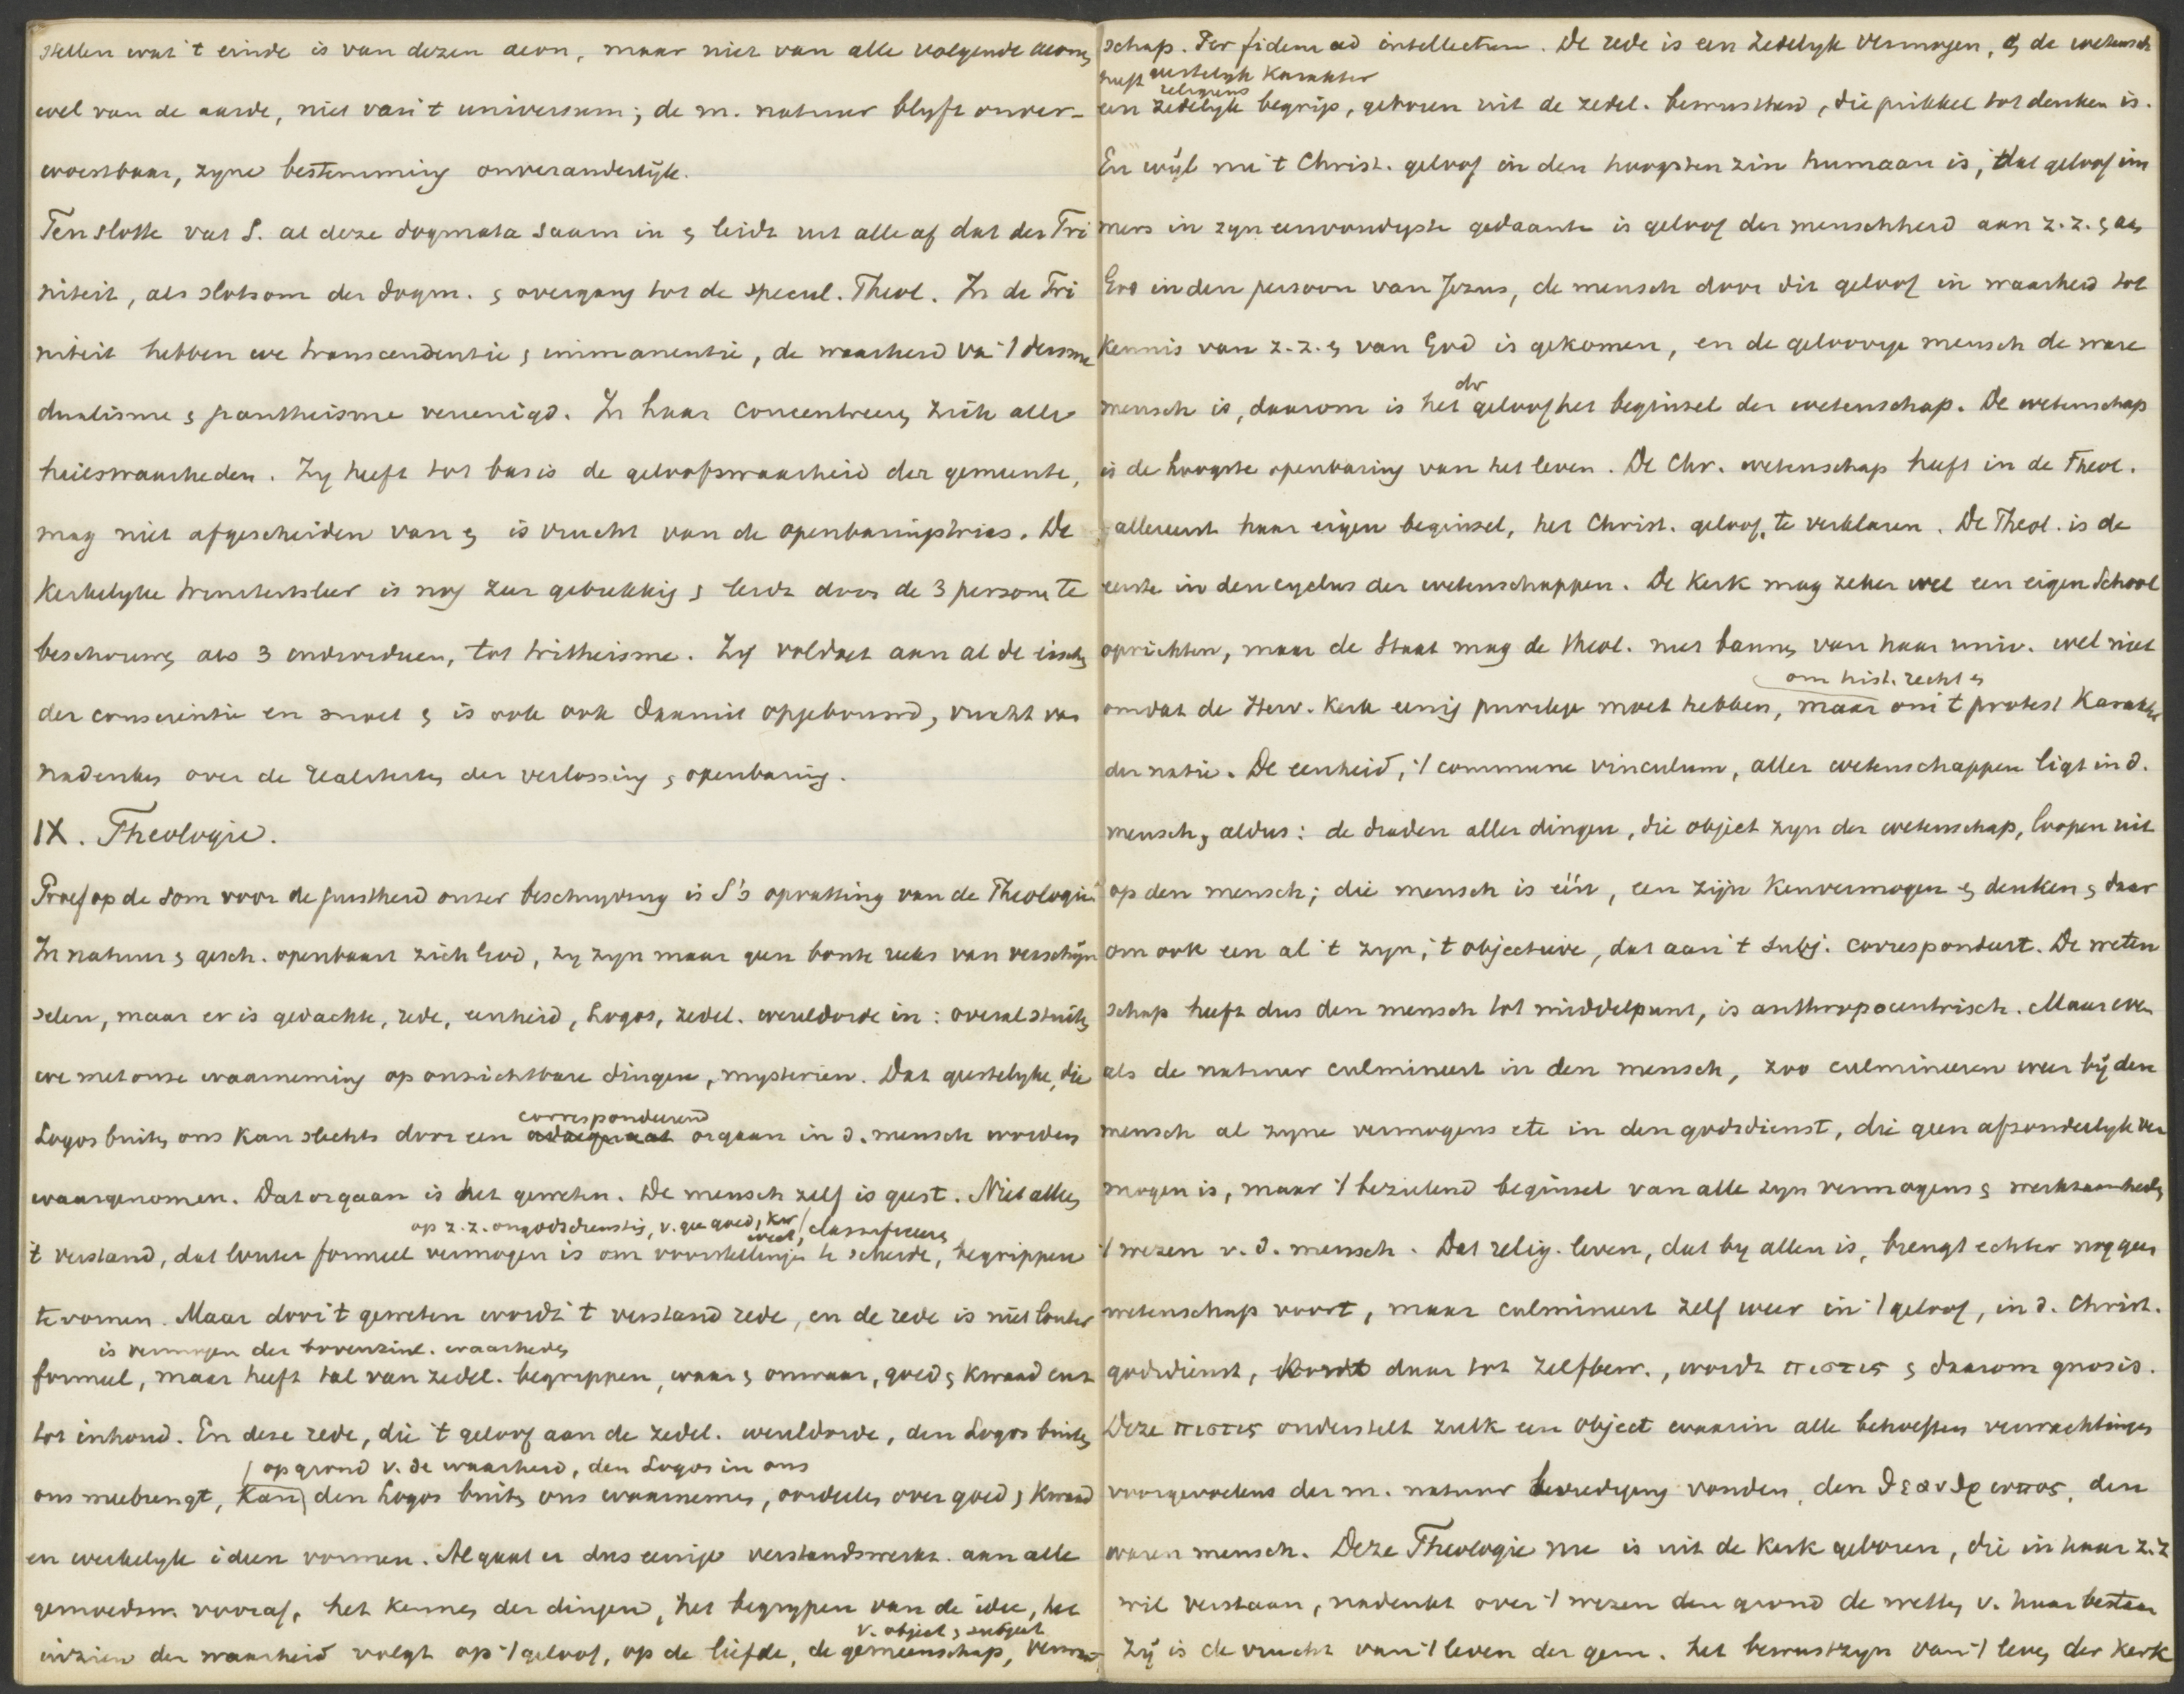 stellen wat 't einde is van dezen aeon, maar niet van alle volgende aeonen
wel van de aarde, niet van 't universum; de m. natuur blyft onver-
woestbaar, zyne bestemming onveranderlijk.
Ten slotte vat S. al deze dogmata saam in & leidt uit alle af dat der Tri
niteit, als slotsom der dogm. & overgang tot de specul. Theol. In de Tri
niteit hebben we transcendentie & immanentie, de waarheid van 't deisme
dualisme & pantheisme vereenigd. In haar concentreeren zich alle
heilswaarheden. Zy heeft tot basis de geloofswaarheid der gemeente,
mag niet afgescheiden van & is vrucht van de openbaringstrias. De
Kerkelyke triniteitsleer is nog zeer gebrekkig & leidt door de 3 personen te
beschouwen als 3 individuen, tot tritheisme. Zy voldoet aan al de eischen
der conscientie en moet & is ook ook daaruit opgebouwd, vrucht van
nadenken over de realiteiten der verlossing & openbaring.
IX. Theologie.
Proef op de som voor de juistheid onzer beschryving is S's opvatting van de Theologie
In natuur & gesch. openbaart zich God, zy zyn maar geen bonte reeks van verschijn
selen, maar er is gedachte, rede, eenheid, Logos, zedel. wereldorde in: overal stuiten
we met onze waarneming op onzichtbare dingen, mysterien. Dat geestelyke, die
correspondeerend
Logos buiten ons kan slechts door een adaequaat orgaan in d. mensch worden
waargenomen. Dat orgaan is het geweten. De mensch zelf is geest. Niet alleen
op z. z. ongodsdienstig, v. gee goed, kw / classificeeren
weet,
't verstand, dat louter formeel vermogen is om voorstellingen te scheide, begrippen
te vormen. Maar door 't geweten wordt 't verstand rede, en de rede is niet louter
is vermogen der bovenzinl. waarheden
formeel, maar heeft tal van zedel. begrippen, waar & onwaar, goed & kwaad enz
tot inhoud. En deze rede, die 't geloof aan de zedel. wereldorde, den Logos buiten
/ op grond v. de waarheid, den Logos in ons
ons meebrengt, kan den Logos buiten ons waarnemen, oordeelen over goed & kwaad
en werkelyk ideen vormen. Al gaat er dus eenige verstandswerkz. aan alle
gemoedsw. vooraf, het kennen der dingen, het begrypen van de idee, het
v. object & subject
inzien der waarheid volgt op 't geloof, op de liefde, de gemeenschap, verwant
schap. Per fidem ad intellectum. De rede is een zedelyk vermogen, & de wetensch
heeft zedelyk karakter
religieus
een zedelyk begrip, geboren uit de zedel. bewustheid, die prikkel tot denken is.
En wijl nu 't Christ. geloof in den hoogsten zin humaan is, dat geloof im
mers in zyn eenvoudigste gedaante is geloof der menschheid aan z. z. & aan
God in den persoon van Jezus, de mensch door dit geloof in waarheid tot
kennis van z. z. & van God is gekomen, en de geloovige mensch de ware
chr
mensch is, daarom is het geloof het beginsel der wetenschap. De wetenschap
is de hoogste openbaring van het leven. De Chr. wetenschap heeft in de Theol.
allereerst haar eigen beginsel, het Christ. geloof, te verklaren. De Theol. is de
eerste in den cyclus der wetenschappen. De Kerk mag zeker wel een eigen School
oprichten, maar de Staat mag de theol. niet bannen van haar univ. wel niet
om hist. recht &
omdat de Herv. Kerk eenig privilege moet hebben, maar om 't protest Karakter
der natie. De eenheid, 't commune vinculum, aller wetenschappen ligt in d.
mensch, aldus: de draden aller dingen, die object zyn der wetenschap, loopen uit
op den mensch; die mensch is één, een zijn kenvermogen & denken & daar
om ook een al 't zyn, 't objectieve, dat aan 't subj. correspondeert. De weten
schap heeft dus den mensch tot middelpunt, is anthropocentrisch. Maar even
als de natuur culmineert in den mensch, zoo culmineeren weer bij den
mensch al zyne vermogens etc in den godsdienst, die geen afzonderlyk ver
mogen is, maar 't bezielend beginsel van alle zyn vermogens & werkzaamheden
't wezen v. d. mensch. Dat relig. leven, dat by allen is, brengt echter nog geen
wetenschap voort, maar culmineert zelf weer in 't geloof, in d. Christ.
godsdienst, komt daar tot zelfbew., wordt πιστις & daarom gnosis.
Deze πιστις onderstelt zulk een object waarin alle behoeften verwachtingen
voorgevoelens der m. natuur bevrediging vonden, den θεανθρωπος, den
waren mensch. Deze Theologie nu is uit de Kerk geboren, die in haar z. z
wil verstaan, nadenkt over 't wezen den grond de wetten v. haar bestaan
Zij is de vrucht van 't leven der gem. het bewustzyn van 't leven der Kerk